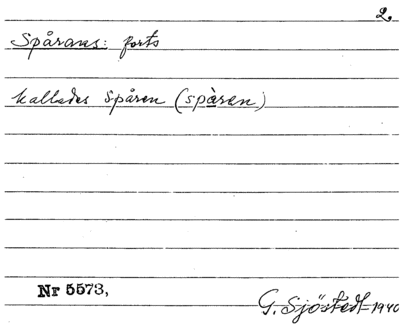 2.
Spårans: forts
kallades Spåren (spàren)
Nr 5573,
G. Sjöstedt 1940